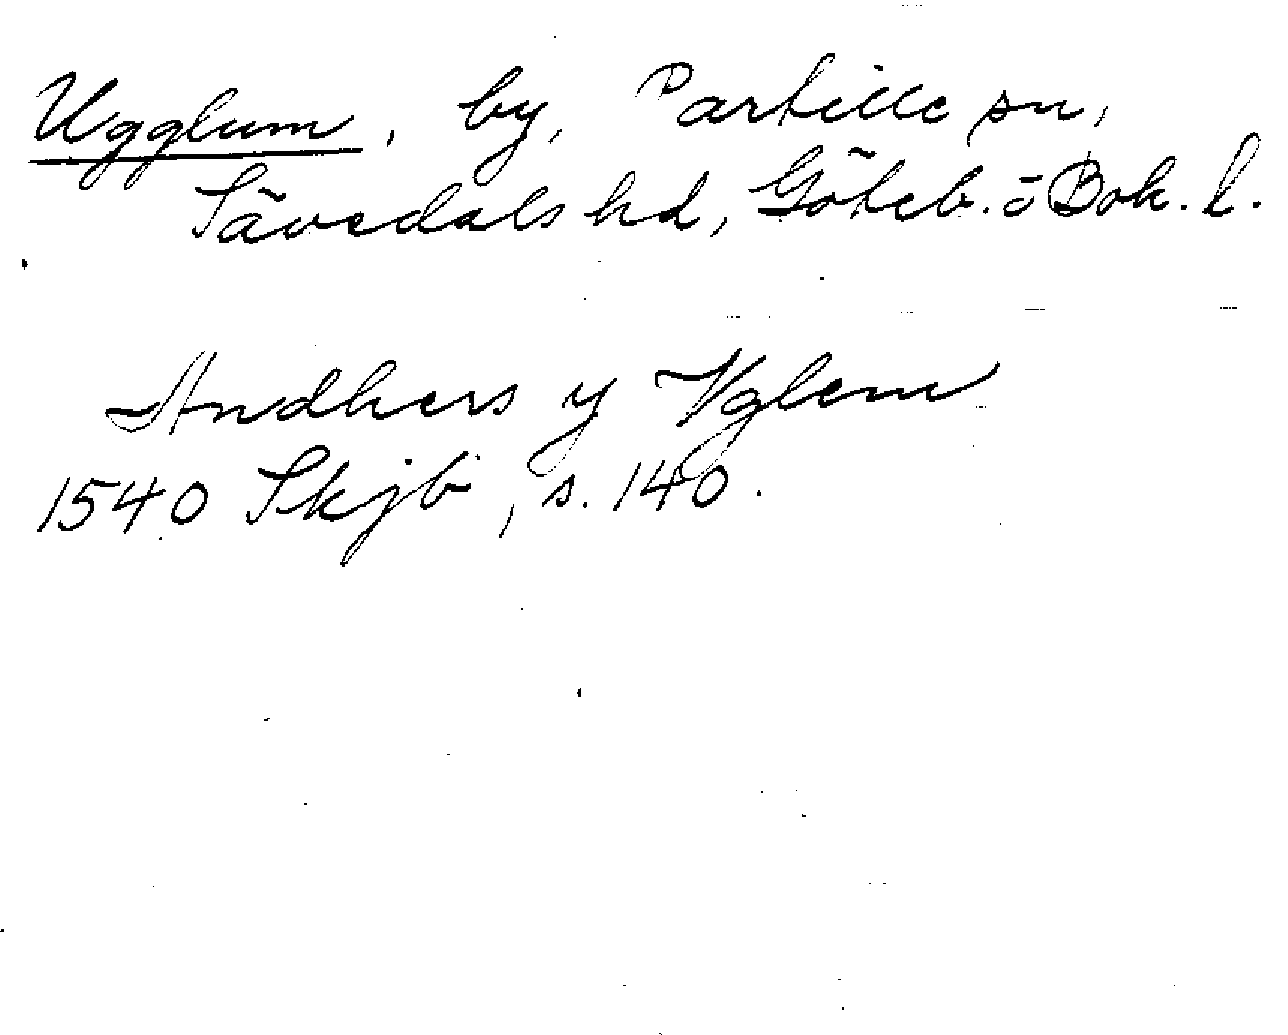 Ugglum, by, Partille sn,
Sävedals hd, Göteb. o Boh. l.
Andhers y Vglem
1540 Skjb, s. 140.